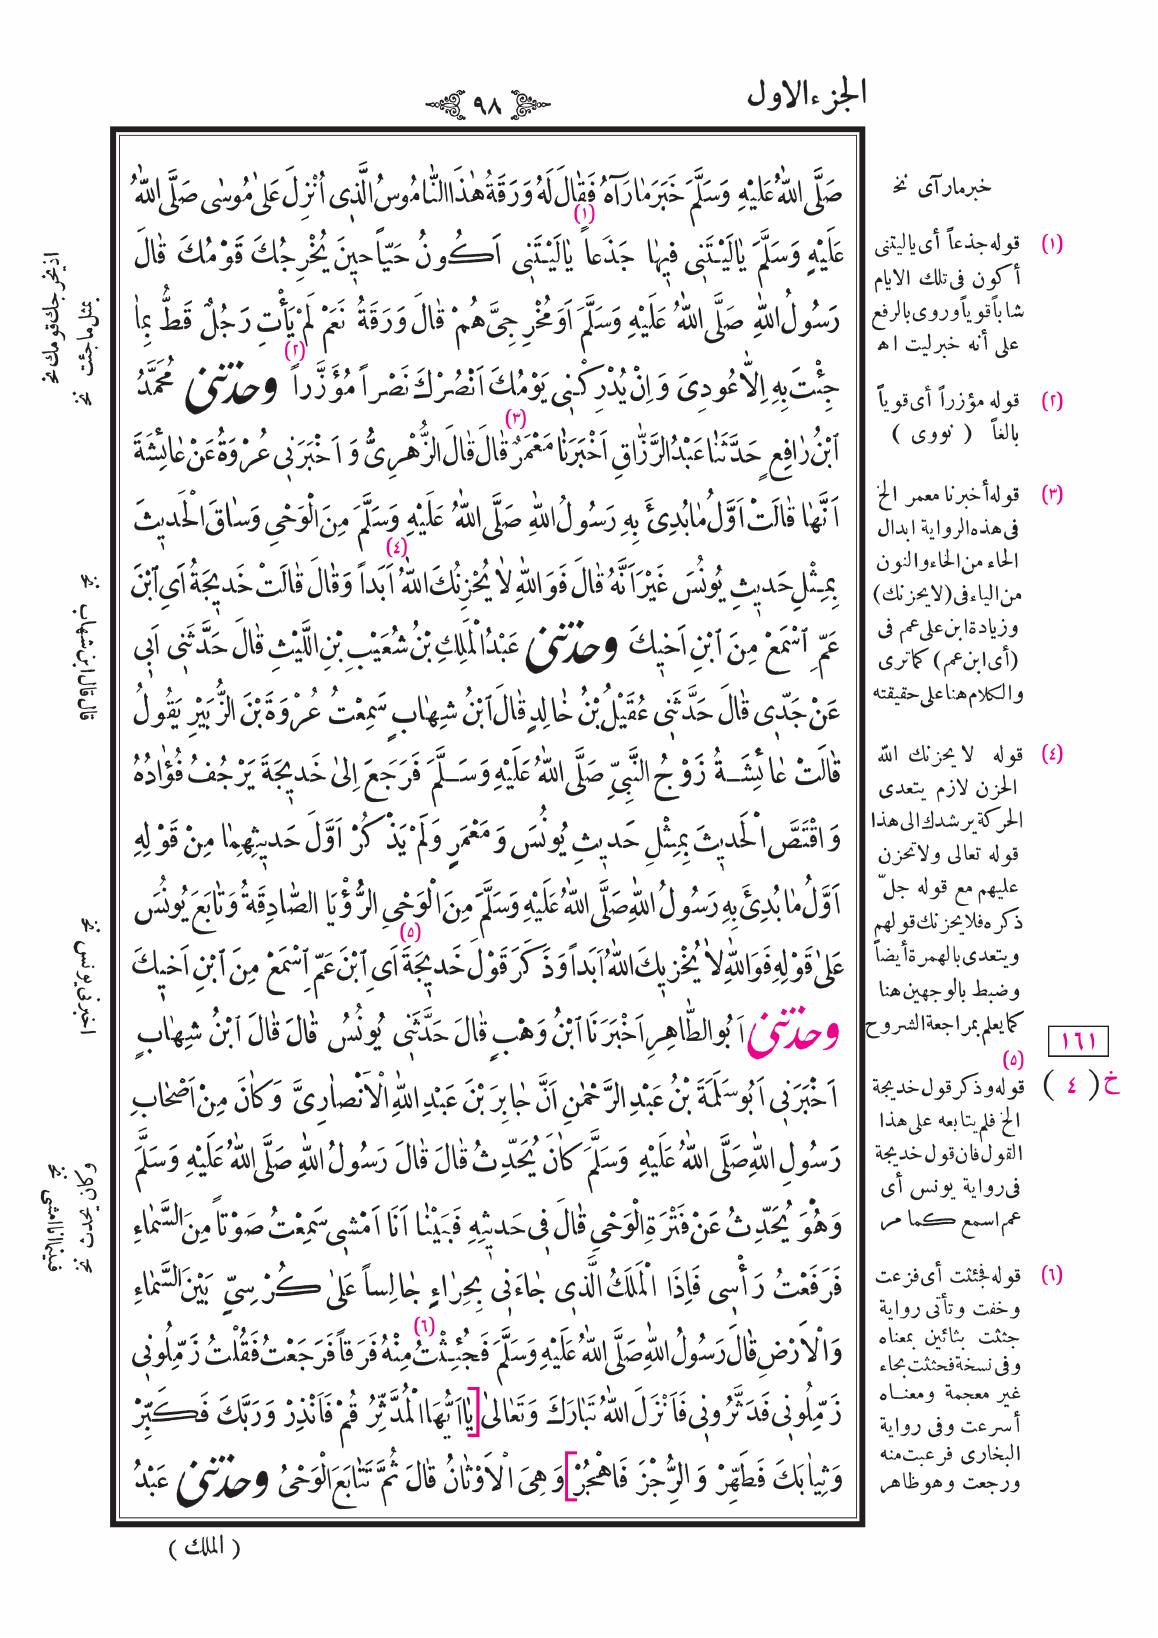 الجزء الاول
٩٨
صَلَّى اللّٰهُ عَلَيْهِ وَسَلَّمَ خَبَرَ مَا رَآهُ فَقَالَ لَهُ وَرَقَةُ هٰذَا النَّامُوسُ الَّذِى اُنْزِلَ عَلىٰ مُوسٰى صَلَّى اللّٰهُ
(١)
عَلَيْهِ وَسَلَّمَ يَالَيْتَنِى فِيهَا جَذَعاً يَالَيْتَنِى اَكُونُ حَيّاً حينَ يُخْرِجُكَ قَوْمُكَ قَالَ
رَسُولُ اللّٰهِ صَلَّى اللّٰهُ عَلَيْهِ وَسَلَّمَ اَوَمُخْرِجِىَّ هُمْ قَالَ وَرَقَةُ نَعَمْ لَمْ يَأْتِ رَجُلٌ قَطُّ بِمَا
(٢)
جِئْتَ بِهِ اِلاّٰ عُودِىَ وَاِنْ يُدْرِكْنى يَوْمُكَ اَنْصُرْكَ نَصْراً مُؤَزَّراً وحدثنى مُحَمَّدُ
(٣)
ابْنُ رَافِعٍ حَدَّثَنَا عَبْدُ الرَّزَّاقِ اَخْبَرَنَا مَعْمَرٌ قَالَ قَالَ الزُّهْرِىُّ وَاَخْبَرَنى عُرْوَةُ عَنْ عَائِشَةَ
اَنَّهَا قَالَتْ اَوَّلُ مَا بُدِئَ بِهِ رَسُولُ اللّٰهِ صَلَّى اللّٰهُ عَلَيْهِ وَسَلَّمَ مِنَ الْوَحْىِ وَسَاقَ الْحَديثَ
(٤)
بِمِثْلِ حَديثِ يُونُسَ غَيْرَ اَنَّهُ قَالَ فَوَاللّٰهِ لاٰ يُحْزِنُكَ اللّٰهُ اَبَداً وَقَالَ قَالَتْ خَديجَةُ اَىِ ابْنَ
عَمِّ اسْمَعْ مِنَ ابْنِ اَخيكَ وحدثنى عَبْدُ الْمَلِكِ بْنُ شُعَيْبِ بْنِ اللَّيْثِ قَالَ حَدَّثَنى اَبى
عَنْ جَدّى قَالَ حَدَّثَنى عُقَيْلُ بْنُ خَالِدٍ قَالَ ابْنُ شِهَابٍ سَمِعْتُ عُرْوَةَ بْنَ الزُّبَيْرِ يَقُولُ
قَالَتْ عَائِشَةُ زَوْجُ النَّبِىِّ صَلَّى اللّٰهُ عَلَيْهِ وَسَلَّمَ فَرَجَعَ اِلىٰ خَديجَةَ يَرْجُفُ فُؤَادُهُ
وَاقْتَصَّ الْحَديثَ بِمِثْلِ حَديثِ يُونُسَ وَمَعْمَرٍ وَلَمْ يَذْكُرْ اَوَّلَ حَديثِهِمَا مِنْ قَوْلِهِ
اَوَّلُ مَا بُدِئَ بِهِ رَسُولُ اللّٰهِ صَلَّى اللّٰهُ عَلَيْهِ وَسَلَّمَ مِنَ الْوَحْىِ الرُّؤْيَا الصَّادِقَةُ وَتَابَعَ يُونُسَ
(٥)
عَلىٰ قَوْلِهِ فَوَاللّٰهِ لاٰ يُخْزيكَ اللّٰهُ اَبَداً وَذَكَرَ قَوْلَ خَديجَةَ اَىِ ابْنَ عَمِّ اسْمَعْ مِنَ ابْنِ اَخيكَ
وحدثنى اَبُو الطَّاهِرِ اَخْبَرَنَا ابْنُ وَهْبٍ قَالَ حَدَّثَنى يُونُسُ قَالَ قَالَ ابْنُ شِهَابٍ
اَخْبَرَنى اَبُو سَلَمَةَ بْنُ عَبْدِ الرَّحْمٰنِ اَنَّ جَابِرَ بْنَ عَبْدِ اللّٰهِ الْاَنْصَارِىَّ وَكَانَ مِنْ اَصْحَابِ
رَسُولِ اللّٰهِ صَلَّى اللّٰهُ عَلَيْهِ وَسَلَّمَ كَانَ يُحَدِّثُ قَالَ قَالَ رَسُولُ اللّٰهِ صَلَّى اللّٰهُ عَلَيْهِ وَسَلَّمَ
وَهُوَ يُحَدِّثُ عَنْ فَتْرَةِ الْوَحْىِ قَالَ فى حَديثِهِ فَبَيْنَا اَنَا اَمْشى سَمِعْتُ صَوْتاً مِنَ السَّمَاءِ
فَرَفَعْتُ رَأْسى فَاِذَا الْمَلَكُ الَّذى جَاءَنى بِحِرَاءٍ جَالِساً عَلىٰ كُرْسِىٍّ بَيْنَ السَّمَاءِ
(٦)
وَالْاَرْضِ قَالَ رَسُولُ اللّٰهِ صَلَّى اللّٰهُ عَلَيْهِ وَسَلَّمَ فَجُئِثْتُ مِنْهُ فَرَقاً فَرَجَعْتُ فَقُلْتُ زَمِّلُونى
زَمِّلُونى فَدَثَّرُونى فَاَنْزَلَ اللّٰهُ تَبَارَكَ وَتَعَالىٰ [يَا اَيُّهَا الْمُدَّثِّرُ قُمْ فَاَنْذِرْ وَرَبَّكَ فَكَبِّرْ
وَثِيَابَكَ فَطَهِّرْ وَالرُّجْزَ فَاهْجُرْ] وَهِىَ الْاَوْثَانُ قَالَ ثُمَّ تَتَابَعَ الْوَحْىُ وحدثنى عَبْدُ
( الملك )
خبر مارآى نخ
(١) قوله جذعاً أى ياليتنى
أكون فى تلك الايام
شاباً قوياً وروى بالرفع
على أنه خبر ليت اه
(٢) قوله مؤزراً أى قوياً
بالغاً ( نووى )
(٣) قوله أخبرنا معمر الخ
فى هذه الرواية ابدال
الحاء من الخاء والنون
من الياء فى (لايحزنك)
وزيادة ابن على عم فى
(أى ابن عم) كما ترى
والكلام هنا على حقيقته
(٤) قوله لايحزنك الله
الحزن لازم يتعدى
بالحركة يرشدك الى هذا
قوله تعالى ولاتحزن
عليهم مع قوله جلّ
ذكره فلايحزنك قولهم
ويتعدى بالهمزة أيضاً
وضبط بالوجهين هنا
كما يعلم بمراجعة الشروح
(٥)
قوله وذكر قول خديجة
الخ فلم يتابعه على هذا
القول فان قول خديجة
فى رواية يونس أى
عم اسمع كما مر
(٦) قوله فجئثت أى فزعت
وخفت وتأتى رواية
جثثت بثائين بمعناه
وفى نسخة فحثثت بحاء
غير معجمة ومعناه
أسرعت وفى رواية
البخارى فرعبت منه
ورجعت وهو ظاهر
١٦١
خ ( ٤ )
اذ يخرجك قومك نخ
بمثل ماجئت نخ
قال قال ابن شهاب نخ
اخبرنى يونس نخ
وكان يحدث نخ
فبينما انا امشى نخ